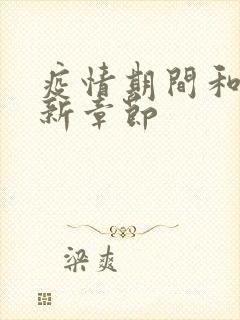 疫情期間和
新章節
梁爽